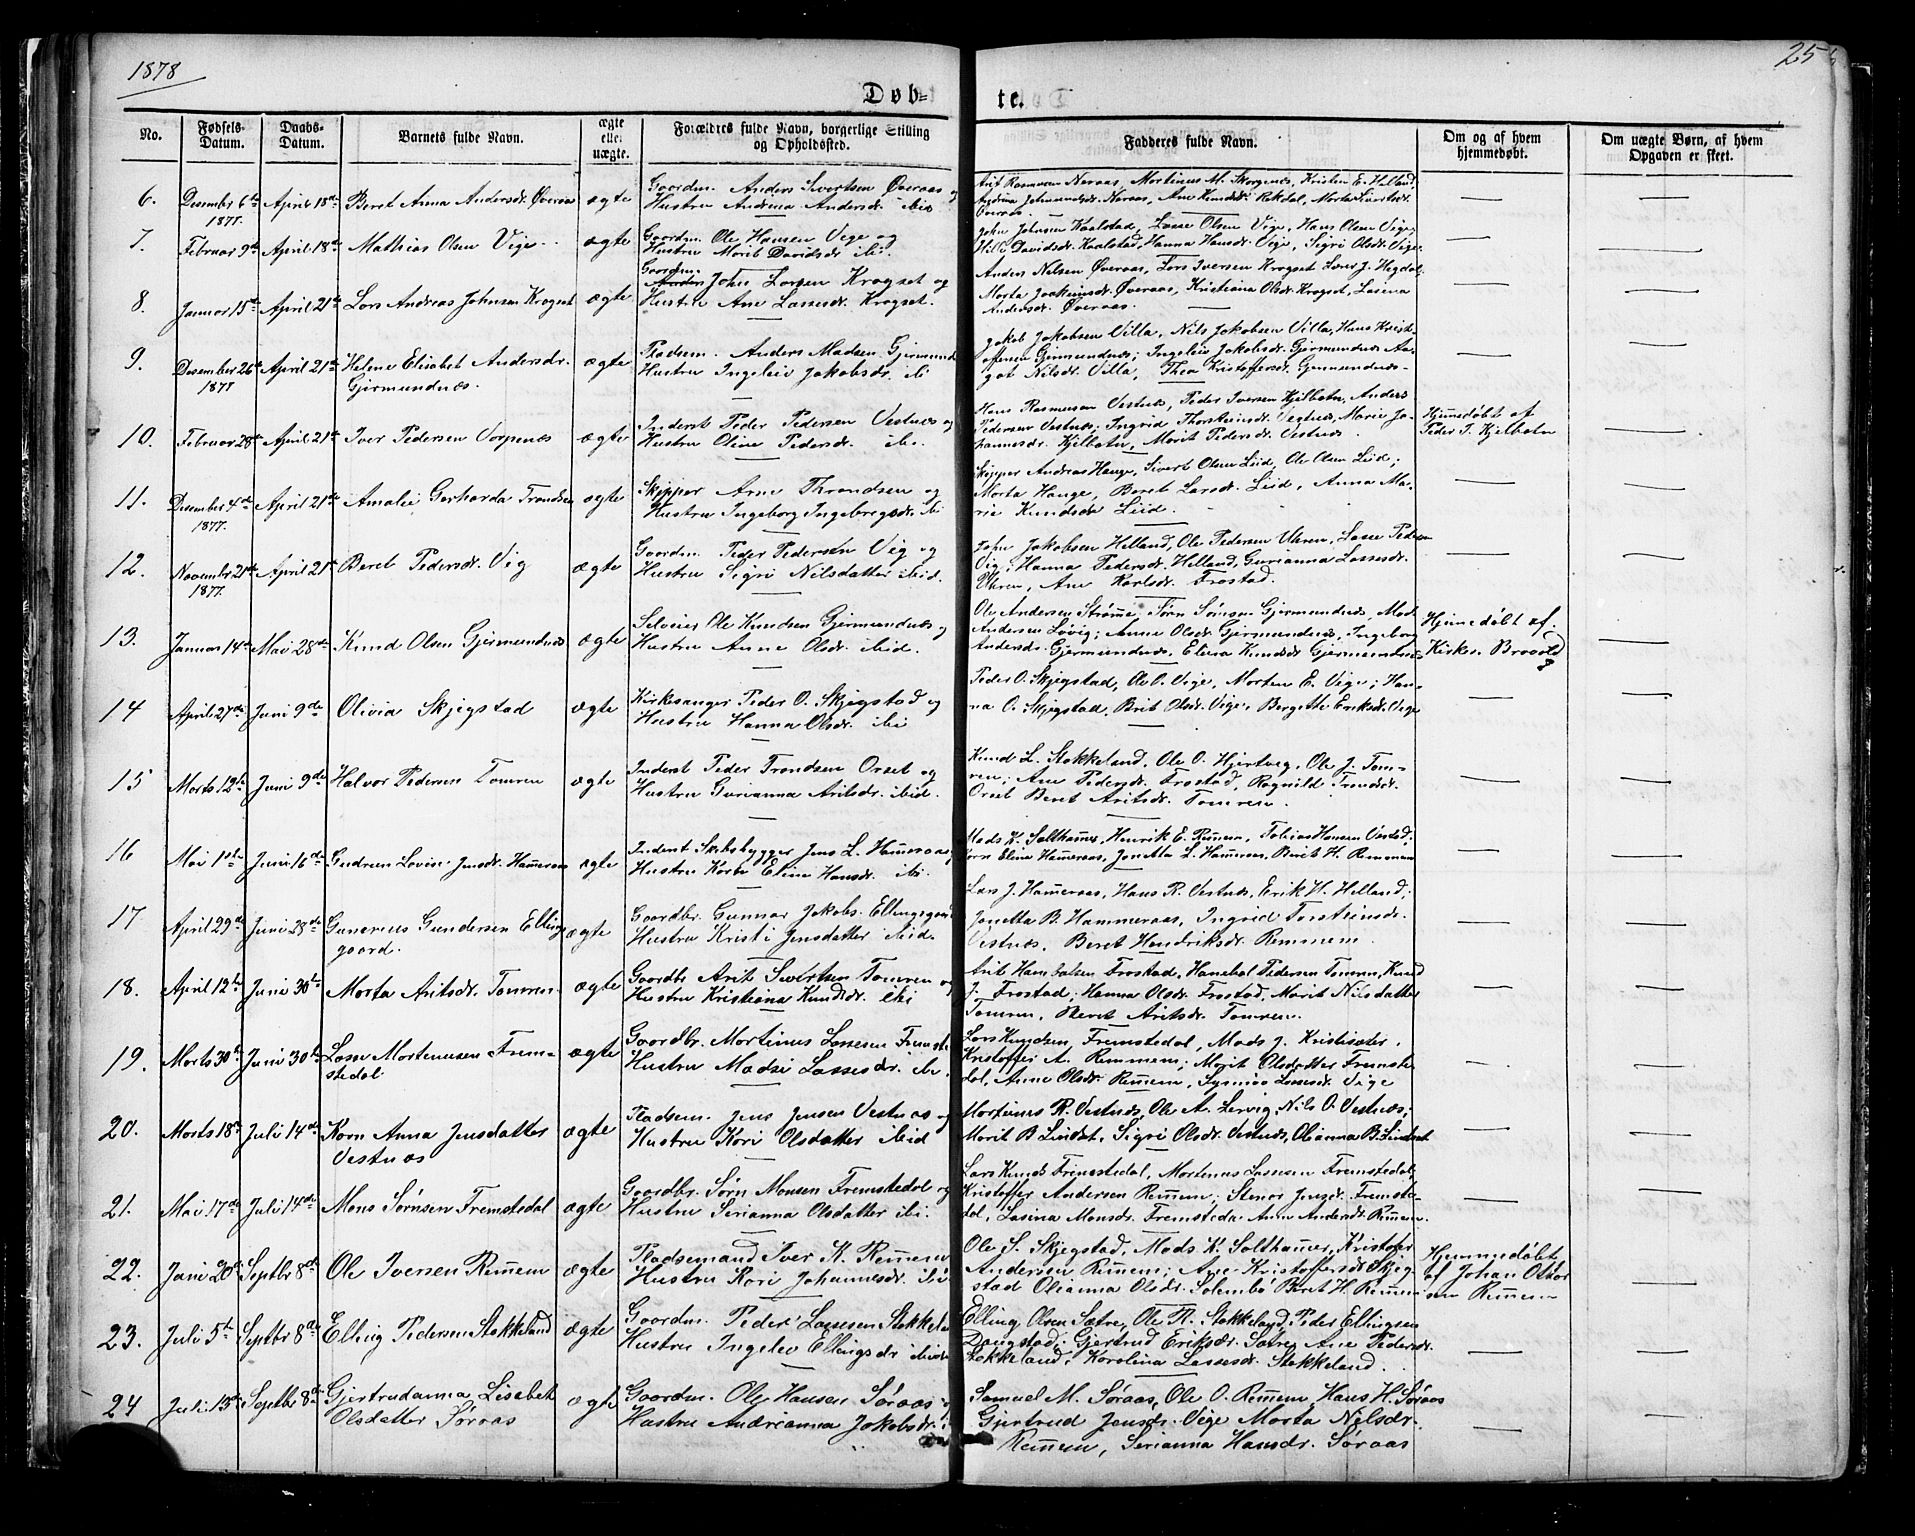 1878
25
Døb-
te.
No.
Fødsels-
Datum.
Daabs-
Datum.
Barnets fulde Navn.
ægte
eller
uægte.
Forældres fulde Navn, borgerlige Stilling
og Opholdssted.
Fadderes fulde Navn.
Om og af hvem
hjemmedøbt.
Om uægte Børn, af hvem
Opgaven er skeet.
6. Desember 6te April 18de Beret Anna Andersdr. Øveraas ægte Gaardm. Anders Sivertsen Øveraas og
1877. Hustru Andrina Andersdr. ibid
Arit Rasmusen Neraas, Martinus M. Skorgenes, Kristen E. Helland,
Andrina Johannesdr. Neraas, Ane Knudsdr. Rekdal, Morta Sivertsdr.
Øveraas.
7. Februar 9de April 18de Mathias Olsen Vige ægte Gaardm. Ole Hansen Vige og
Hustru Marit Davidsdr. ibi.
John Johnsen Kaalstad, Lasse Olsen Vige, Hans Olsen Vige,
Davidsdr. Kaalstad, Hanna Hansdr. Vige, Sigri Olsdr. Vige.
8. Januar 15de April 21de Lars Andreas Johnsen Krogset ægte Gaardm. John Larsen Krogset og
Hustru Ane Lassesdr. Krogset.
Anders Nilsen Øveraas, Lars Iversen Krogset, Lars J. Hegdal,
Morta Joakimsdr. Øveraas, Kristiana Olsdr. Krogset, Lasina
Andersdr. Øveraas
9. Desember 26de April 21de Helene Elisabet Andersdr. ægte Pladsem. Anders Madsen Gjermund
1877 Gjermundnæs. Hustru Ingeleiv Jakobsdr. ibi
Jakob Jakobsen Villa, Nils Jakobsen Villa, Hans Krist-
offersen Gjermundnæs; Ingeleiv Jakobsdr. Gjermundnæs, Aa-
got Nilsdr. Villa, Thea Kristoffersdr. Germundnæs.
10. Februar 28de April 21de Iver Pedersen Vorpenæs ægte Inderst Peder Pedersen Vestnæs og
Hustru Oline Pedersdr. ibi
Hans Rasmusen Vestnæs, Peder Iversen Kjelbotn, Anders
Pedersen Vestnæs; Ingrid Thorsteinsdr. Vestnæs, Marie Jo-
hannesdr. Kjelbotn, Marit Pedersdr. Vestnæs.
Hjemedøbt af
Peder I. Kjelbotn
11. Desember 4de April 21de Amalie Gerharda Trondsen ægte Skipper Arne Throndsen og
1877. Hustru Ingeborg Ingebregtsdr. ibi
Skipper Andreas Hauge, Sivert Olsen Liid, Ole Olsen Liid;
Morta Hauge, Beret Larsdr. Liid, Anna Ma-
rie Knudsdr Liid.
12. November 21de April 21de Beret Pedersdr. Vig ægte Gaardm. Peder Pedersen Vig og
1877. Hustru Sigri Nilsdatter ibid.
John Jakobsen Helland, Ole Pedersen Uhren, Lasse Peders
Vig; Hanna Pedersdr. Helland, Gurianna Lassesdr.
Uhren, Ane Karlsdr. Frostad.
13. Januar 14de Mai 28de Knud Olsen Gjermundnæs ægte Selveier Ole Knudsen Gjermundnæs og
Hustru Anne Olsdr. ibid.
Ole Andersen Strømme, Sørn Sørnsen Gjermundnæs, Mads
Andersen Løvig; Anne Olsdr. Gjermundnæs, Ingeborg
Andersdr. Gjermundnæs, Elina Knudsdr Gjermundnæs
Hjemedøbt af.
Kirkes. Bravold
14 April 27de Juni 9de Olivia Skjegstad ægte Kirkesanger Peder O. Skjegstad og
Hustru Hanna Olsdr. ibi
Peder O. Skjegstad, Ole O. Vige, Morten E. Vige; Han-
na O. Skjegstad, Brit Olsdr. Vige, Bergette Eriksdr. Vige
15 Marts 12te Juni 9de Halvor Pedersen Tomren ægte Inderst Peder Trondsen Orset og
Hustru Gurianna Aritsdr. ibid.
Knud L. Stokkeland, Ole O. Hjertvig, Ole J. Tom-
ren; Ane Pedersdr. Frostad, Ragnild Trondsdr.
Orset Beret Aritsdr. Tomren.
16 Mai 1ste Juni 16de Gudrun Lovise Jensdr. Hameraas ægte Inderst Skibsbygger Jens L. Hameraas
Hustru Karen Eline Hansdr. ibi.
Mads K. Salthamer, Henrik E. Remem, Tobias Hansen Vestad;
Karn Eline Hameraas, Jonetta L. Hameraas, Beret H. Rememem
17 April 29de Juni 28de Gunerius Gundersen Elling ægte Gaardbr. Gunnar Jakobs. Ellingsgaard
gaard. Hustru Kristi Jensdatter ibid.
Lars J. Hameraas, Hans R. Vestnæs, Erik H. Helland;
Jonetta B. Hammeraas, Ingrid Torsteinsdr.
Vestnæs, Beret Hendriksdr. Remmem.
18. April 12te Juni 30te Morta Aritsdr. Tomren. ægte Gaardbr Arit Sivertsen Tomren og
Hustru Kristiana Knudsdr. ibi
Arit Hanibalsen Frostad, Hanebal Pedersen Tomren, Knud
J. Frostad; Hanna Olsdr. Frostad, Marit Nilsdatter
Tomren, Beret Aritsdr. Tomren.
19. Marts 30te Juni 30te Lasse Martenusen Frem- ægte Gaardbr. Martinus Lassesen Fremste
stedal Hustru Madsi Lassesdr. ibi.
Lars Knudsen Fremstedal, Mads J. Kristisæter,
Kristoffer A. Remmem; Marit Olsdatter Fremste-
dal, Anne Olsdr. Remem, Synnøv Lassesdr. Vige
20. Marts 18de Juli 14de Karn Anna Jensdatter ægte Pladsem. Jens Jensen Vestnæs og
Vestnæs Hustru Kari Olsdatter ibid
Martinus R. Vestnæs, Ole A. Lervig, Nils O. Vestnæs;
Marit B Lindset, Sigri Olsdr. Vestnæs, Olianna B. Lindset
21. Mai 17de Juli 14de Mons Sørnsen Fremstedal ægte Gaardbr. Sørn Monsen Fremstedal og
Hustru Serianna Olsdatter ibi.
Lars Knuds Fremstedal, Mortenus Lassesen Fremstedal,
Kristoffer Andersen Remem; Stenor Jensdr. Fremste-
dal, Lasina Monsdr. Fremsteda Anne Andersdr. Remem.
22. Juni 20de Septbr 8de Ole Iversen Remem ægte Pladsemand Iver K. Remem
Hustru Kari Johannesdr. ibi
Ole S. Skjegstad, Mads K. Salthamer, Kristofer
Andersen Remem; Ane Kristoffersdr Skjeg-
stad Olianna Olsdr. Solembø Beret H. Remem
Hjemmedøbt
af Johan
Remem
23. Juli 5te Septbr 8de Elling Pedersen Stokkeland ægte Gaardm. Peder Lassesen Stokkela
Hustru Ingelev Ellingsdr ibid
Elling Olsen Sætre, Ole P. Stokkeland, Peder Ellingsen
Daugstad; Gjertrud Eriksdr. Sætre, Ane Pedersdr
Stokkeland, Karolina Lassesdr. Stokkeland.
24 Juli 13de Septbr 8de Gjertrudanna Lisabet ægte Gaardm. Ole Hansen Søraas
Olsdatter Søraas Hustru Andrianna Jakobsdr.
Samuel M. Søraas, Ole O. Remem, Hans H. Søraas
Gjertrud Jensdr. Vige Morta Nilsdr.
Remem, Serianna Hansdr. Søraas